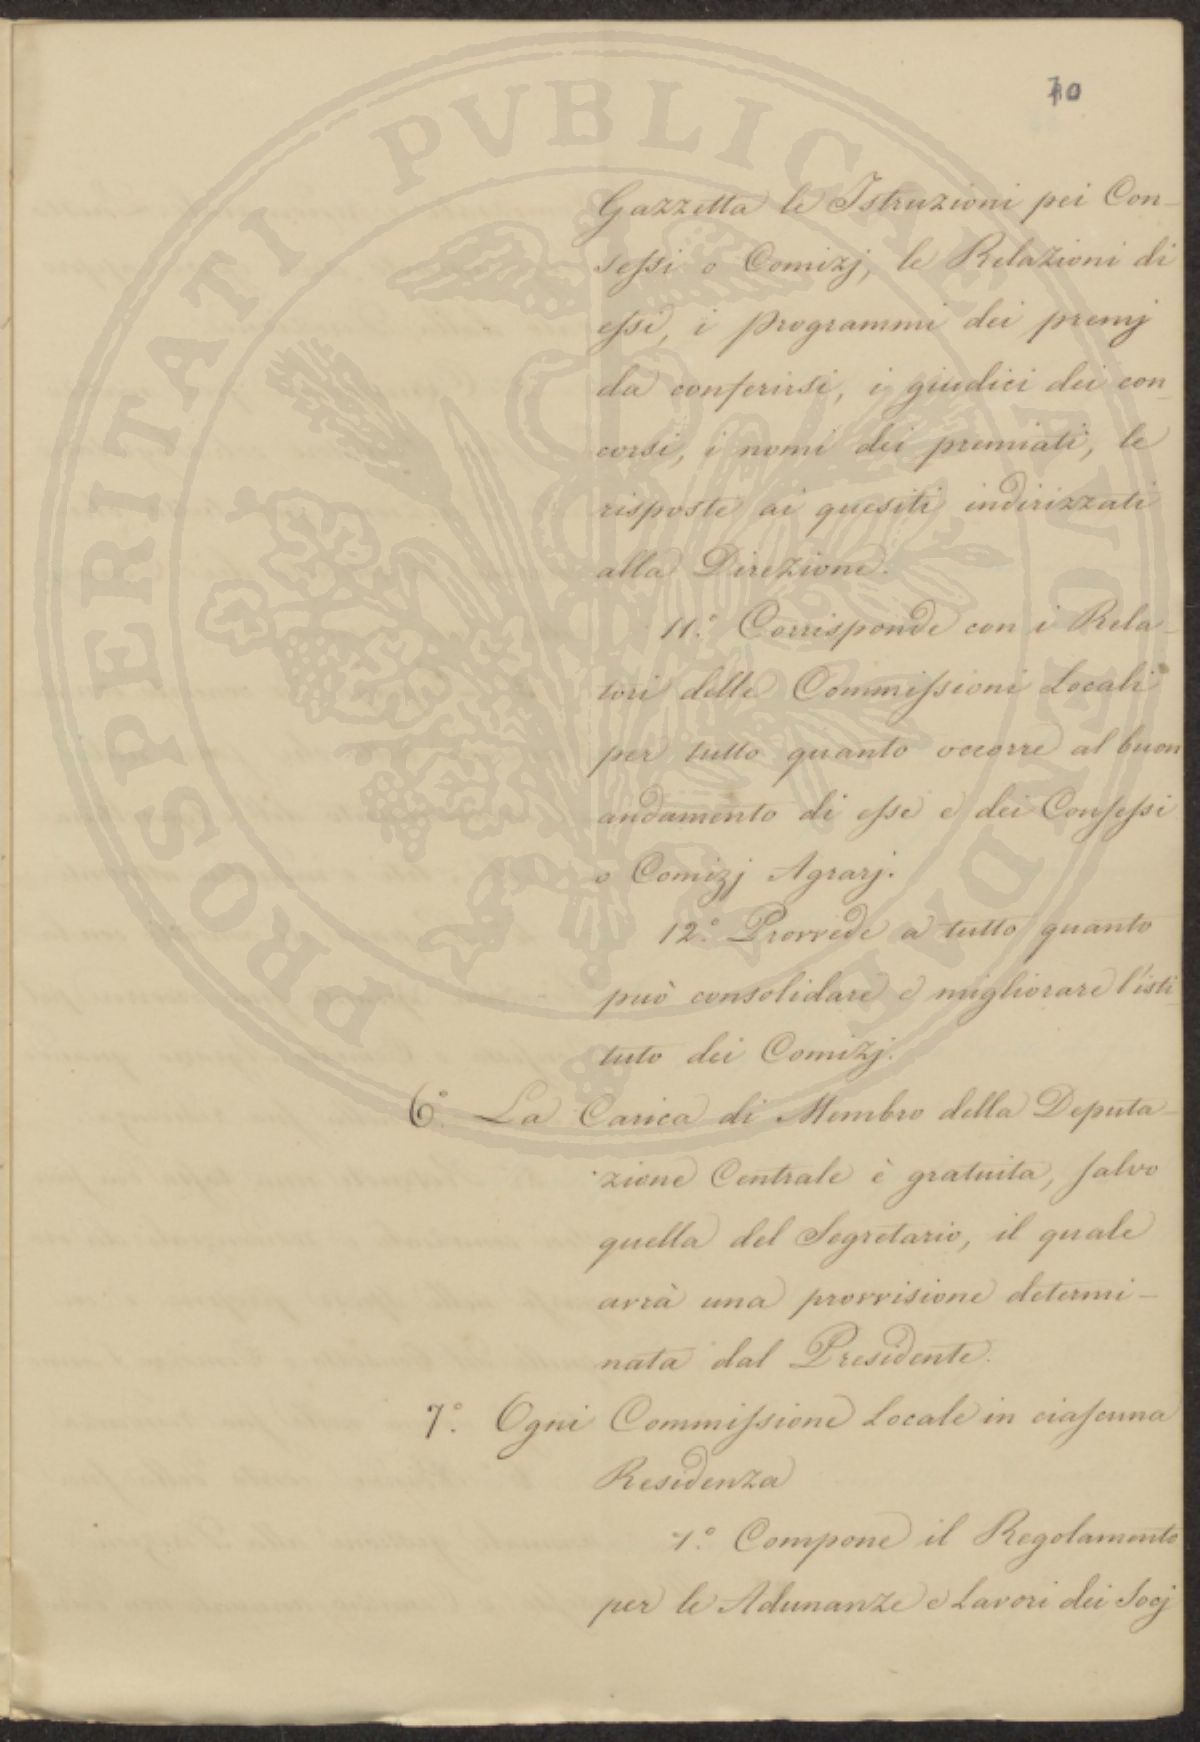 70
Gazzetta le Istruzioni pei Con-
sessi o Comizj, le Relazioni di
essi, i programmi dei premj
da conferirsi, i giudici dei con-
corsi, i nomi dei premiati, le
risposte ai quesiti indirizzati
alla Direzione.
11.° Corrisponde con i Rela-
tori delle Commissioni Locali
per tutto quanto occorre al buon
andamento di esse e dei Consessi
o Comizj Agrarj.
12.° Provvede a tutto quanto
può consolidare e migliorare l'isti-
tuto dei Comizj.
6.° La Carica di Membro della Deputa-
zione Centrale è gratuita, salvo
quella del Segretario, il quale
avrà una provvisione determi-
nata dal Presidente.
7.° Ogni Commissione Locale in ciascuna
Residenza
1.° Compone il Regolamento
per le Adunanze e Lavori dei Socj
PROSPERITATI PVBLICAE AVGENDAE